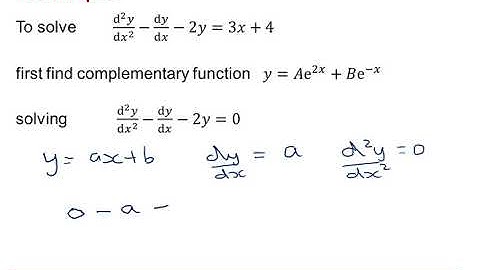 To solve d²y/dx² − dy/dx − 2y = 3x + 4
first find complementary function y = Ae²ˣ + Be⁻ˣ
solving d²y/dx² − dy/dx − 2y = 0
y = ax+b dy/dx = a d²y/dx² = 0
0 − a −